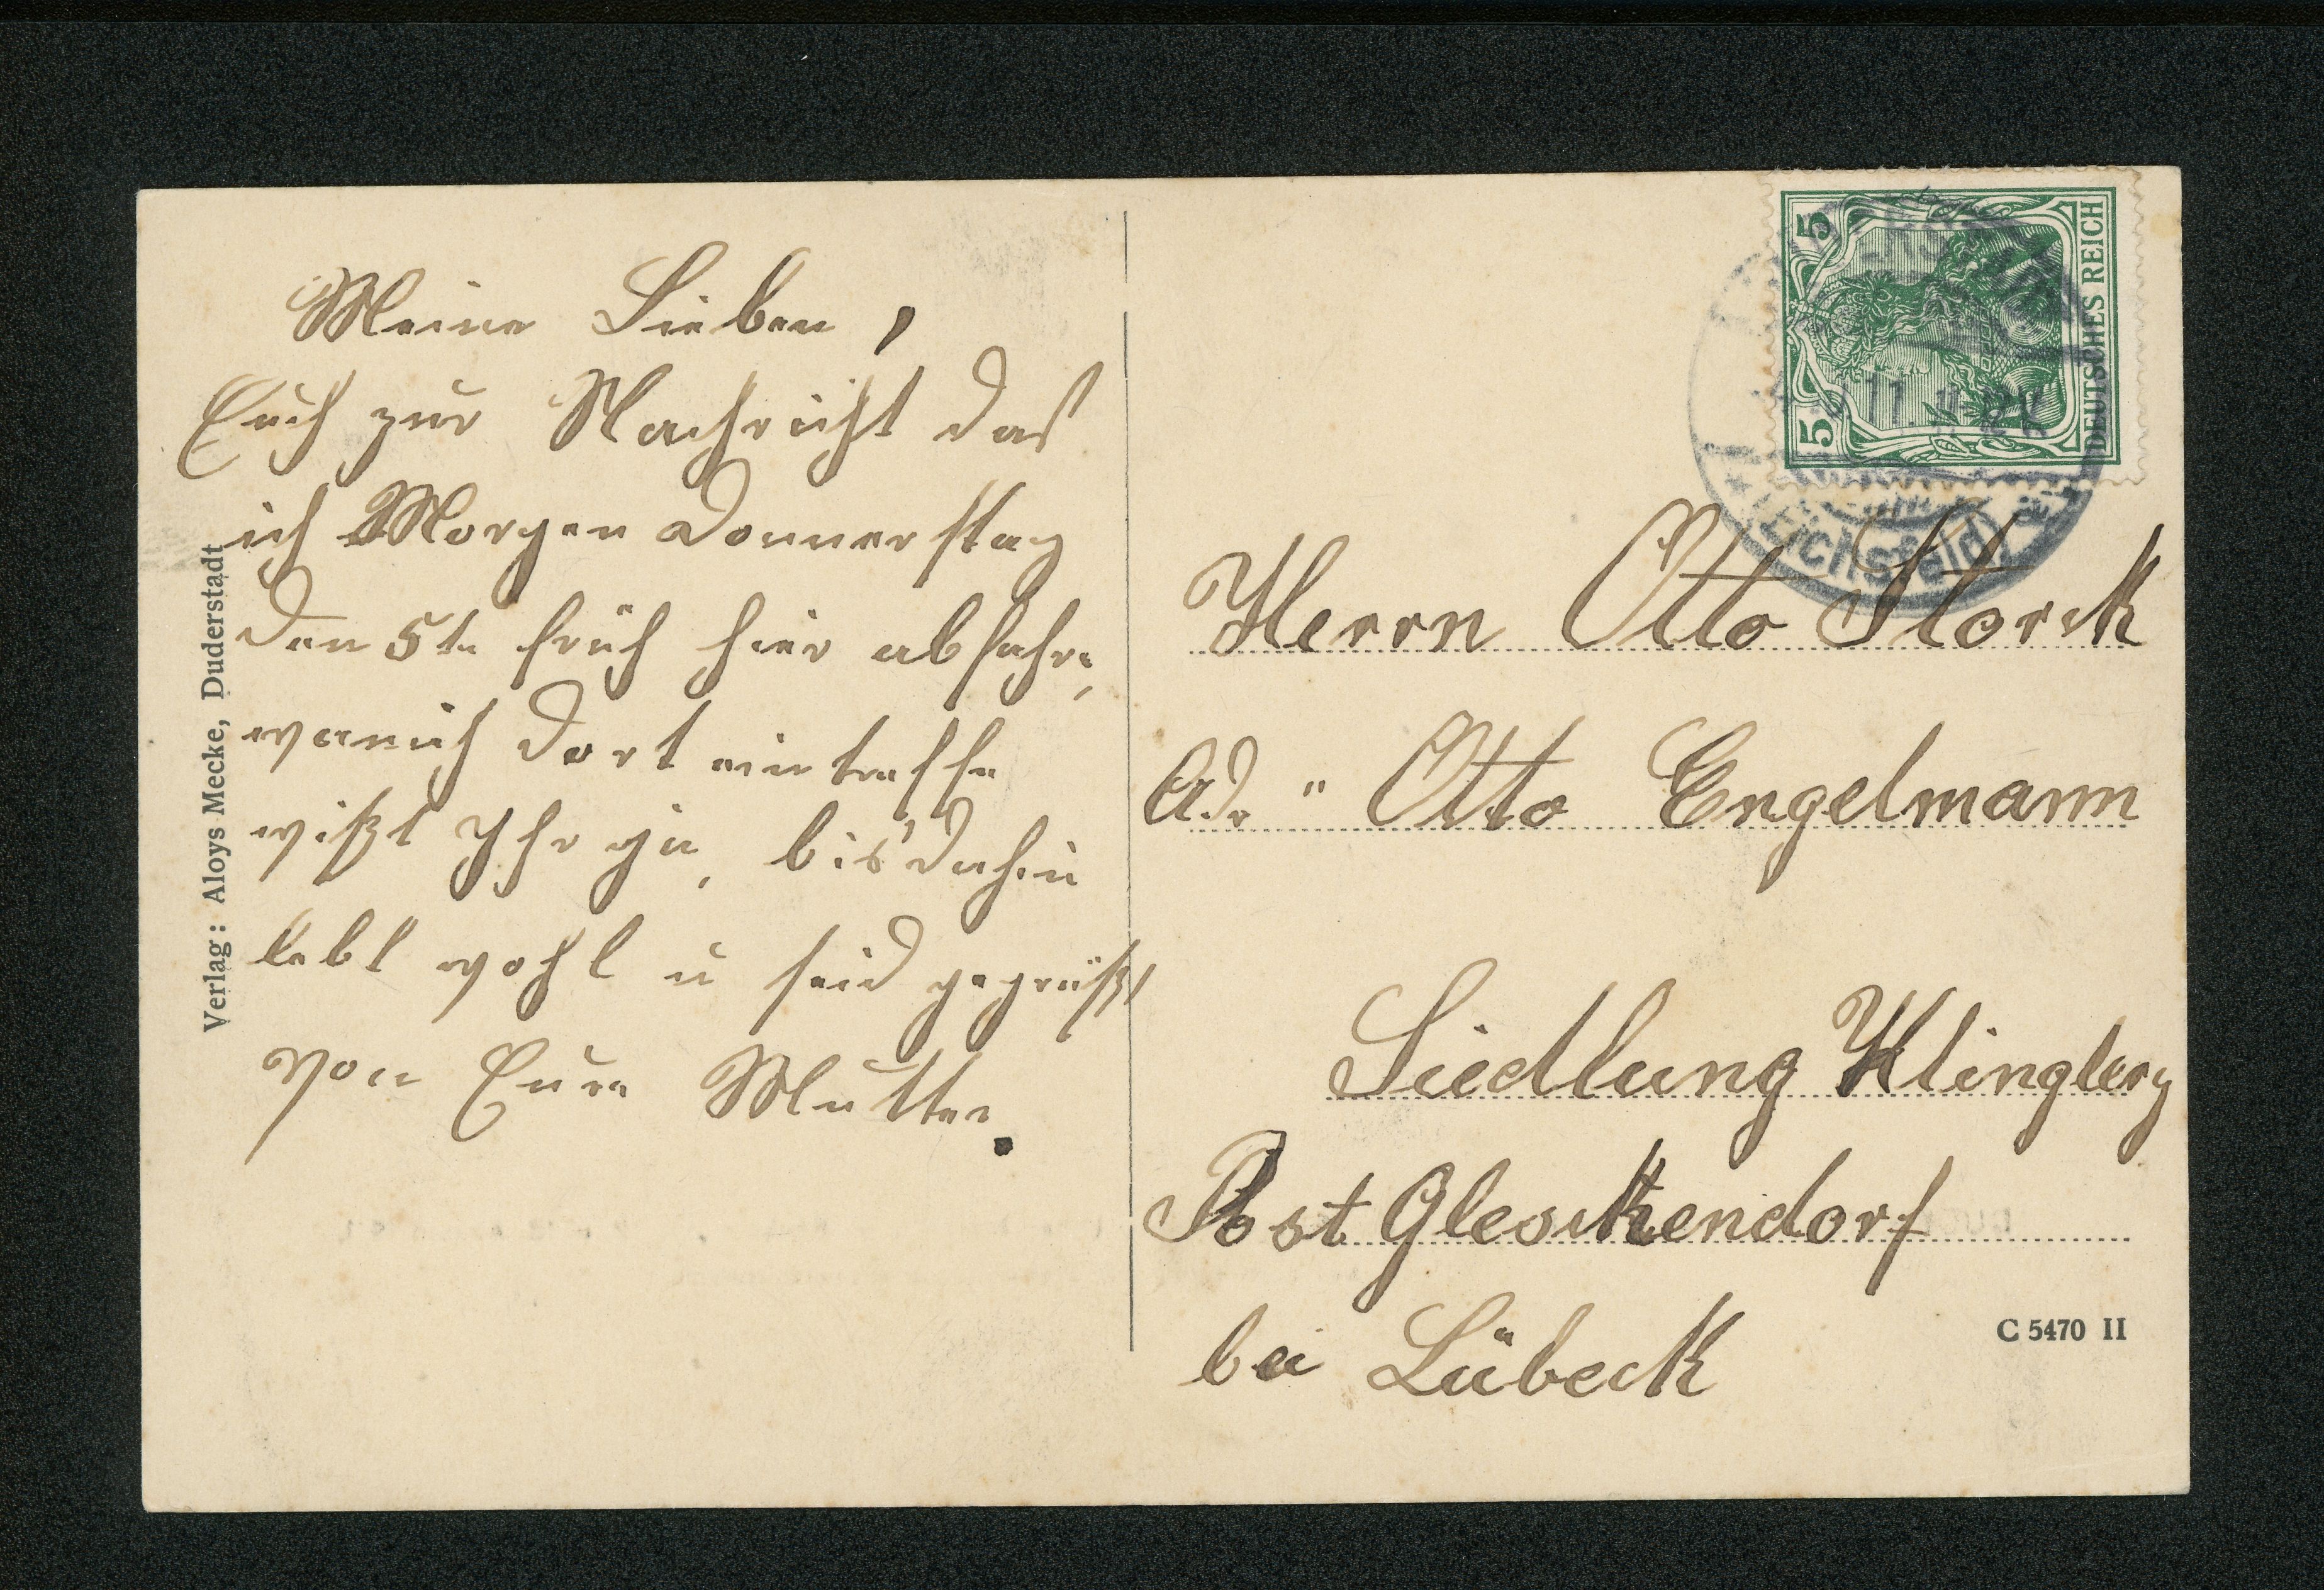 Meine Lieben,
Euch zur Nachricht das
ich Morgen Donnerstag
den 5te früh hier abfahre,
wan ich dort eintreffe
wißt Ihr ja, bis dahin
lebt wohl u seid gegrüßt
von Eure Mutter.
Verlag: Aloys Mecke, Duderstadt
5 5
DEUTSCHES REICH
11
(Eichsfeld)
Herrn Otto Storck
Adr " Otto Engelmann
Siedlung Klingberg
Post Gleschendorf
bei Lübeck
C 5470 II